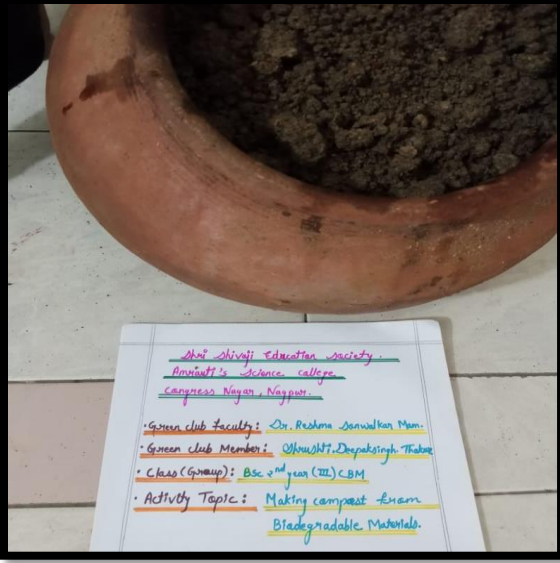 Shri Shivaji Education Society.
Amravti's Science college
Congress Nagar, Nagpur.
• Green club Faculty: Dr. Reshma Sonwalkar Mam.
• Green club Member: Shrushti. Deepaksingh. Thakre
• Class (Group): BSc 2nd year (III) CBM
• Activity Topic: Making compost from
Biadegradable Materials.